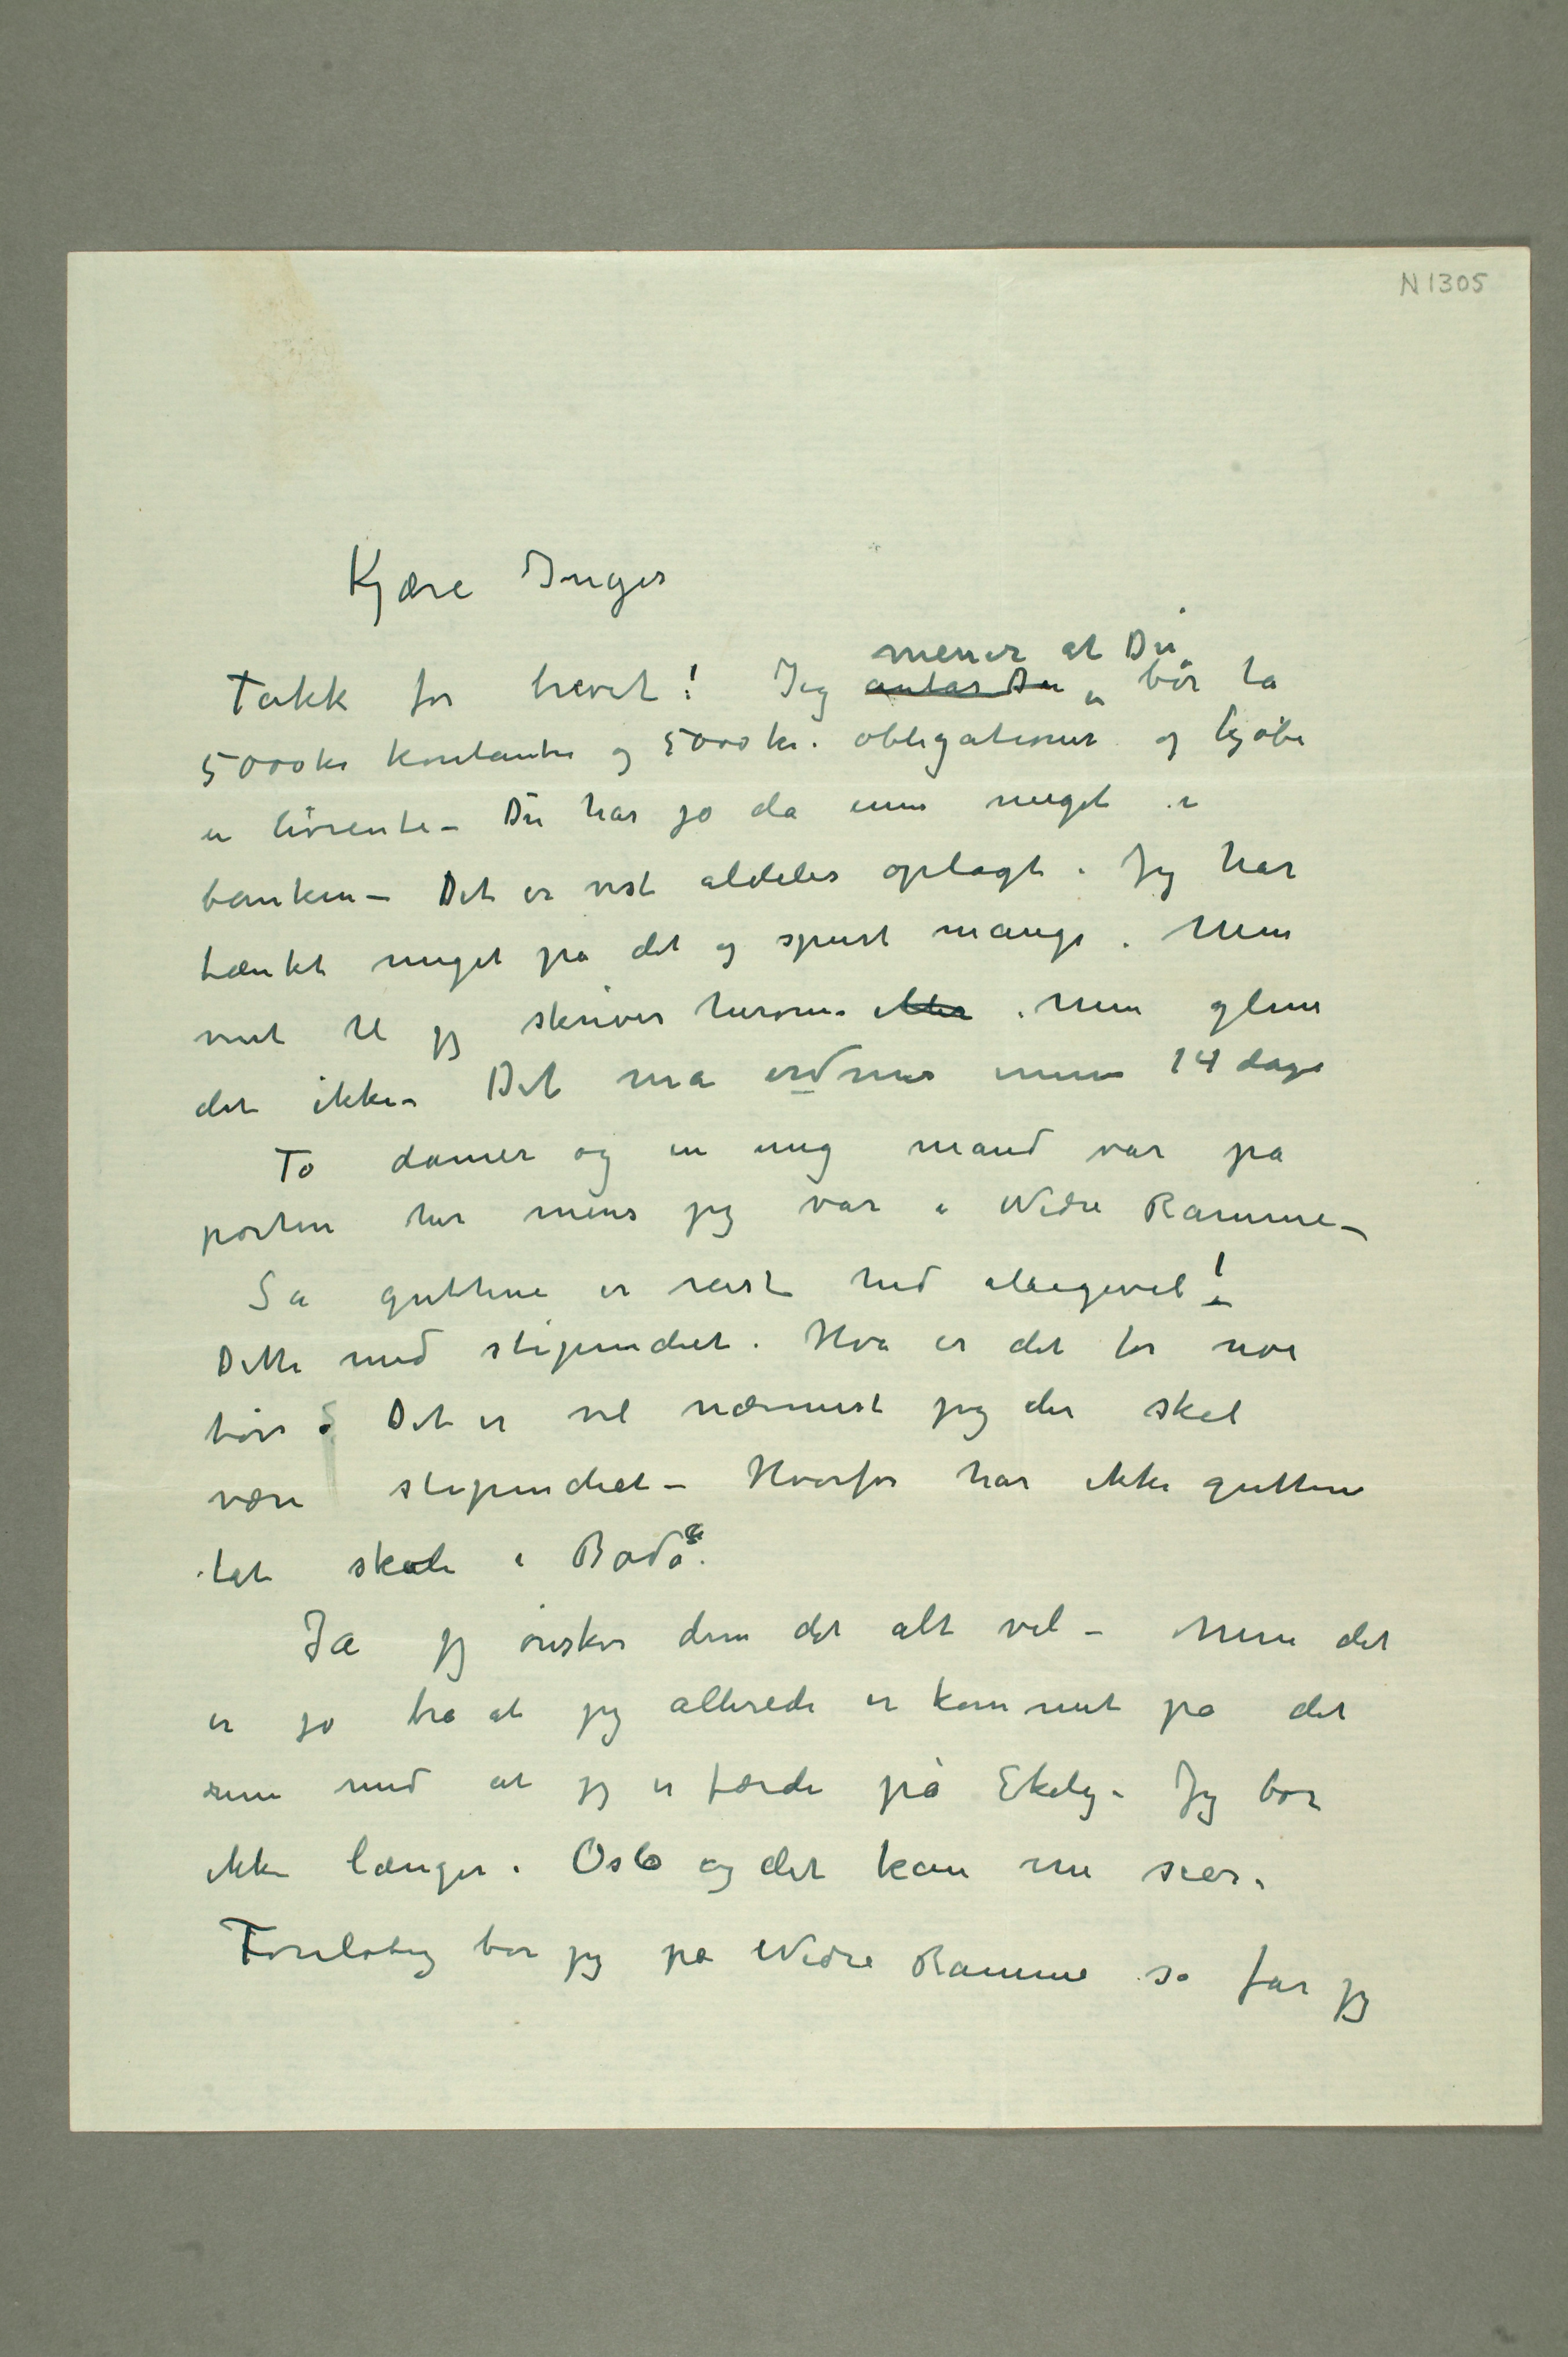 N 1305
Kjære Inger
mener at Du
Takk for brevet! Jeg antar Du bør ta
5000 kr kontanter og 5000 kr. obligationer og kjøbe
en livrente – Du har jo da ennu meget i
banken – Det er vist aldeles oplagt. Jeg har
tænkt meget på det og spurt mange. Men
vent til jeg skriver herom. eller. Men glem
det ikke – Det må ordnes innen 14 dage
To damer og en ung mand var på
porten her mens jeg var i Nedre Ramme –
Så guttene er reist ned allikevel!
Dette med stipendiet. Hva er det for noe
tøv? Det er vel nærmest jeg der skal
være stipendiet – Hvorfor har ikke guttene
tat skole i Bodø?
Ja jeg ønsker dem det alt vel – Men det
er jo bra at jeg allerede er kommet på det
rene med at jeg er færdi på Ekely – Jeg bor
ikke længer i Oslo og det kan nu sees.
Foreløbig bor jeg på Nedre Ramme så får jeg